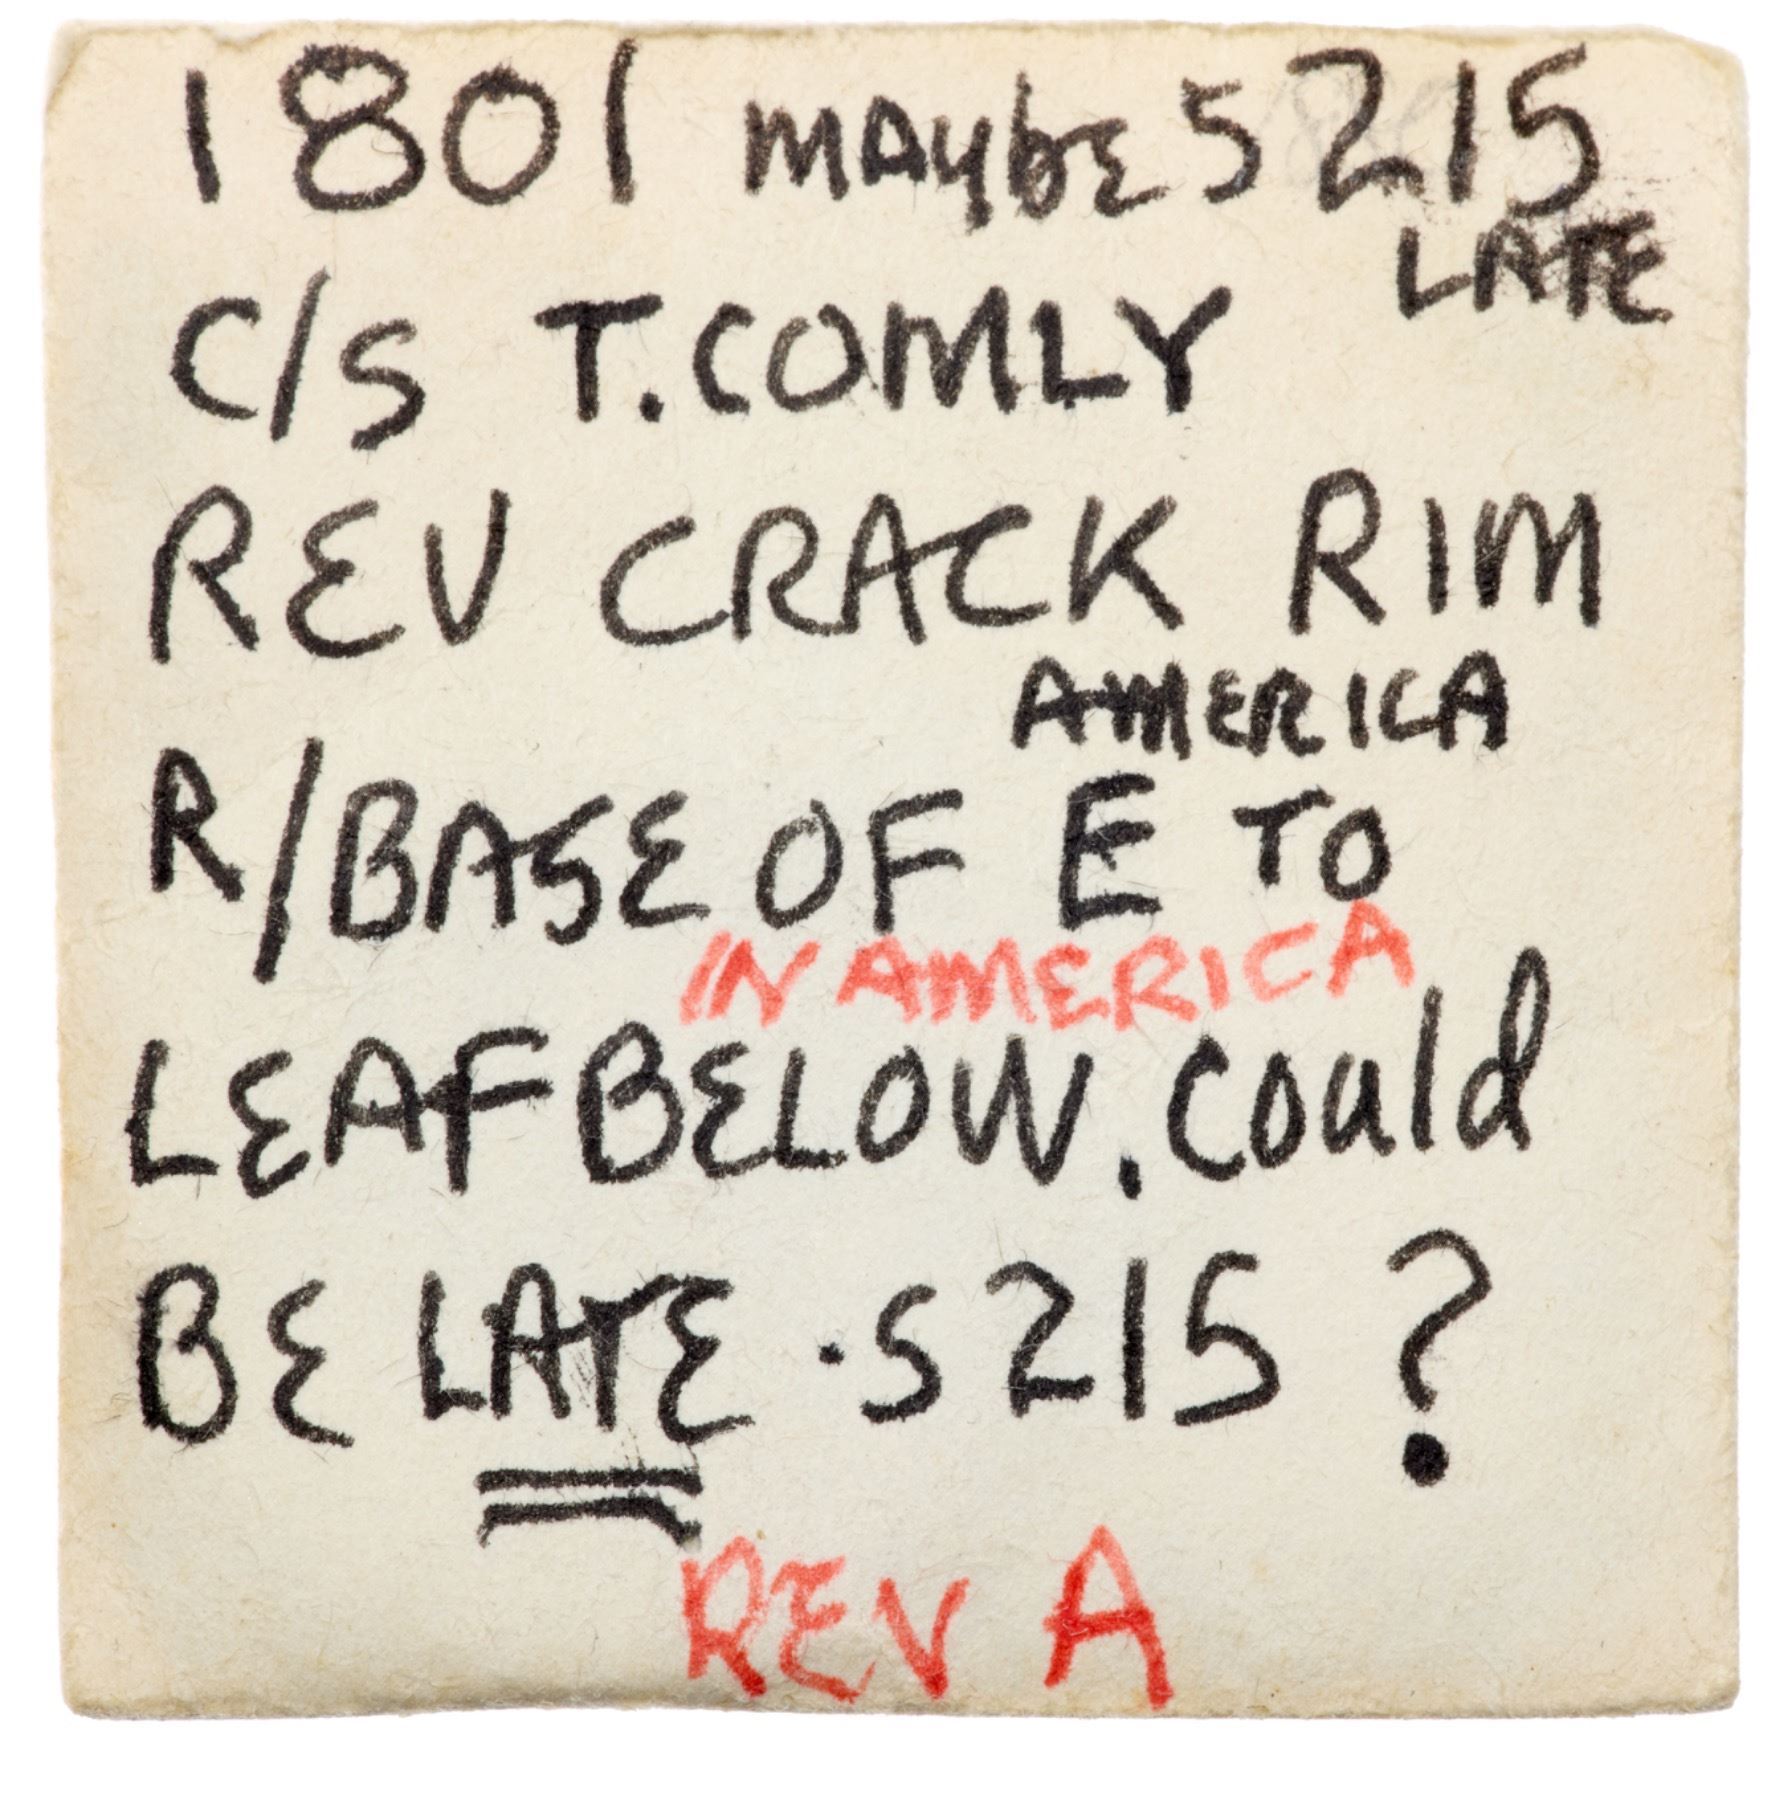 1801 MAYBE S215
LATE
C/S T. COMLY
REV CRACK RIM
AMERICA
R/BASE OF E TO
IN AMERICA
LEAF BELOW. Could
BE LATE . S215 ?
REV A